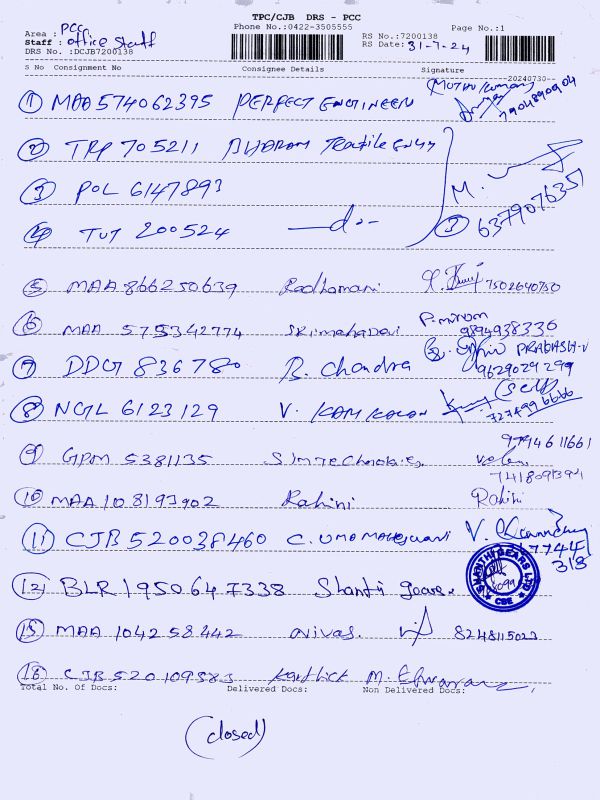 TPC/CJB DRS - PCC
Phone No.:0422-3505555
Page No.:1
Area : PCC
RS No.:7200138
Staff : office staff
RS Date: 31-7-24
DRS No. :DCJB7200138
S No Consignment No Consignee Details Signature
20240730
① MAA 574062395 PERFECT ENGINEER 7904890904
② TRP 705211
③ POL 6147893 M.
④ TUT 200524 —do— ③ 637907635
⑤ MAA 866250639 Radhamani 7502640750
⑥ MAA 575342774 Srimahadevi 9894938336
⑦ DDG 836780 B. Chandra PRAKASH-V 9629029299
⑧ NGL 6123129 V. (Self) 7274996666
9794611661
⑨ GPM 5381135 SIM Technologies
⑩ MAA 108193902 Rahini Rahini
⑪ CJB 520038460 C. UMA MAHESWARI V. 7744 318
⑫ BLR 1950647338 Shanthi gears.
SHANTHI GEARS LTD CBE
⑮ MAA 104258442 nivas. 8248115023
⑯ CJB 520109583 Karthick M.
Total No. Of Docs: Delivered Docs: Non Delivered Docs:
(closed)